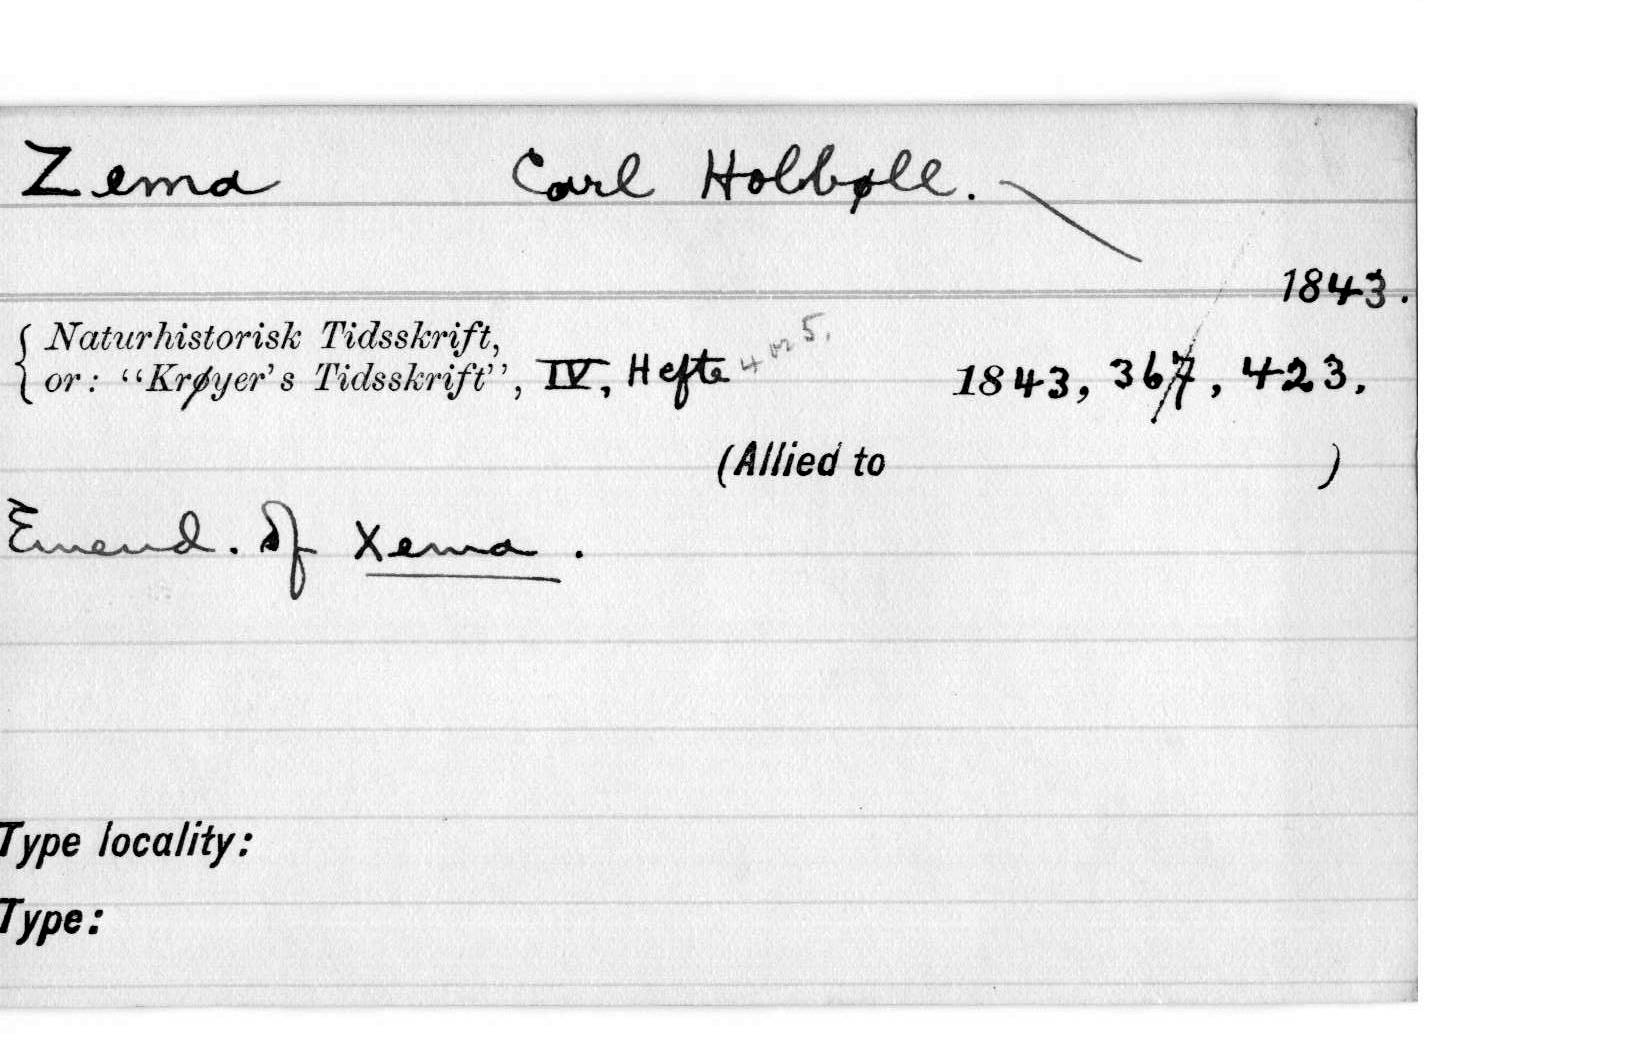 Zema Carl Holbøll.
1843.
Naturhistorisk Tidsskrift,
or: “Krøyer's Tidsskrift”, IV, Hefte 4 or 5. 1843, 367, 423.
(Allied to )
Emend. of Xema.
Type locality:
Type: